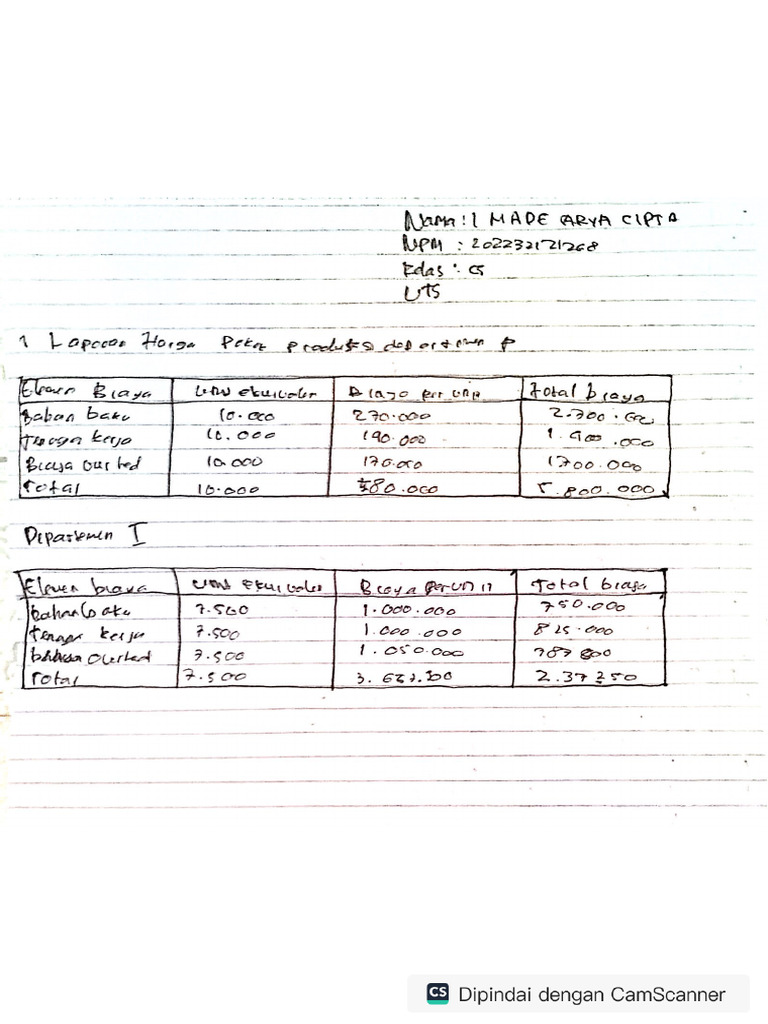 Nama : I MADE ARYA CIPTA
NPM : 202232121268
Kelas : C5
UTS
1 Laporan Harga Pokok produksi departemen
Elemen Biaya Unit ekuivalen Biaya per unit total biaya
Bahan baku 10.000 270.000 2.700.000
Tenaga kerja 10.000 190.000 1.900.000
Biaya overhed 10.000 170.000 1700.000
Total 10.000 580.000 5.800.000
Departemen I
Elemen biaya Unit Ekuivalen Biaya per unit Total biaya
bahan baku 7.500 1.000.000 750.000
tenaga kerja 7.500 1.000.000 825.000
overhed 7.500 1.050.000 787
Total 7.500 2.37 250
CS Dipindai dengan CamScanner